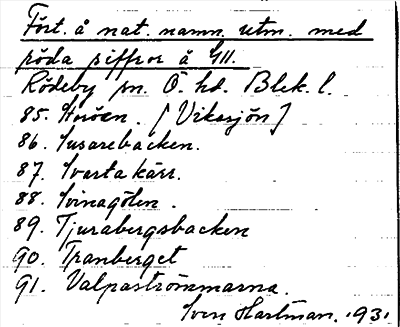 Fört. å nat. namn. utm. med
röda siffror å GII.
Rödeby sn. Ö. hd. Blek. l.
85. Horöen. [Viksjön]
86. Susarebacken.
87. Svarta kärr.
88. Svinagölen.
89. Tjurabergsbacken
90. Tranberget
91. Valpaströmmarna.
Sven Hartman. 1931